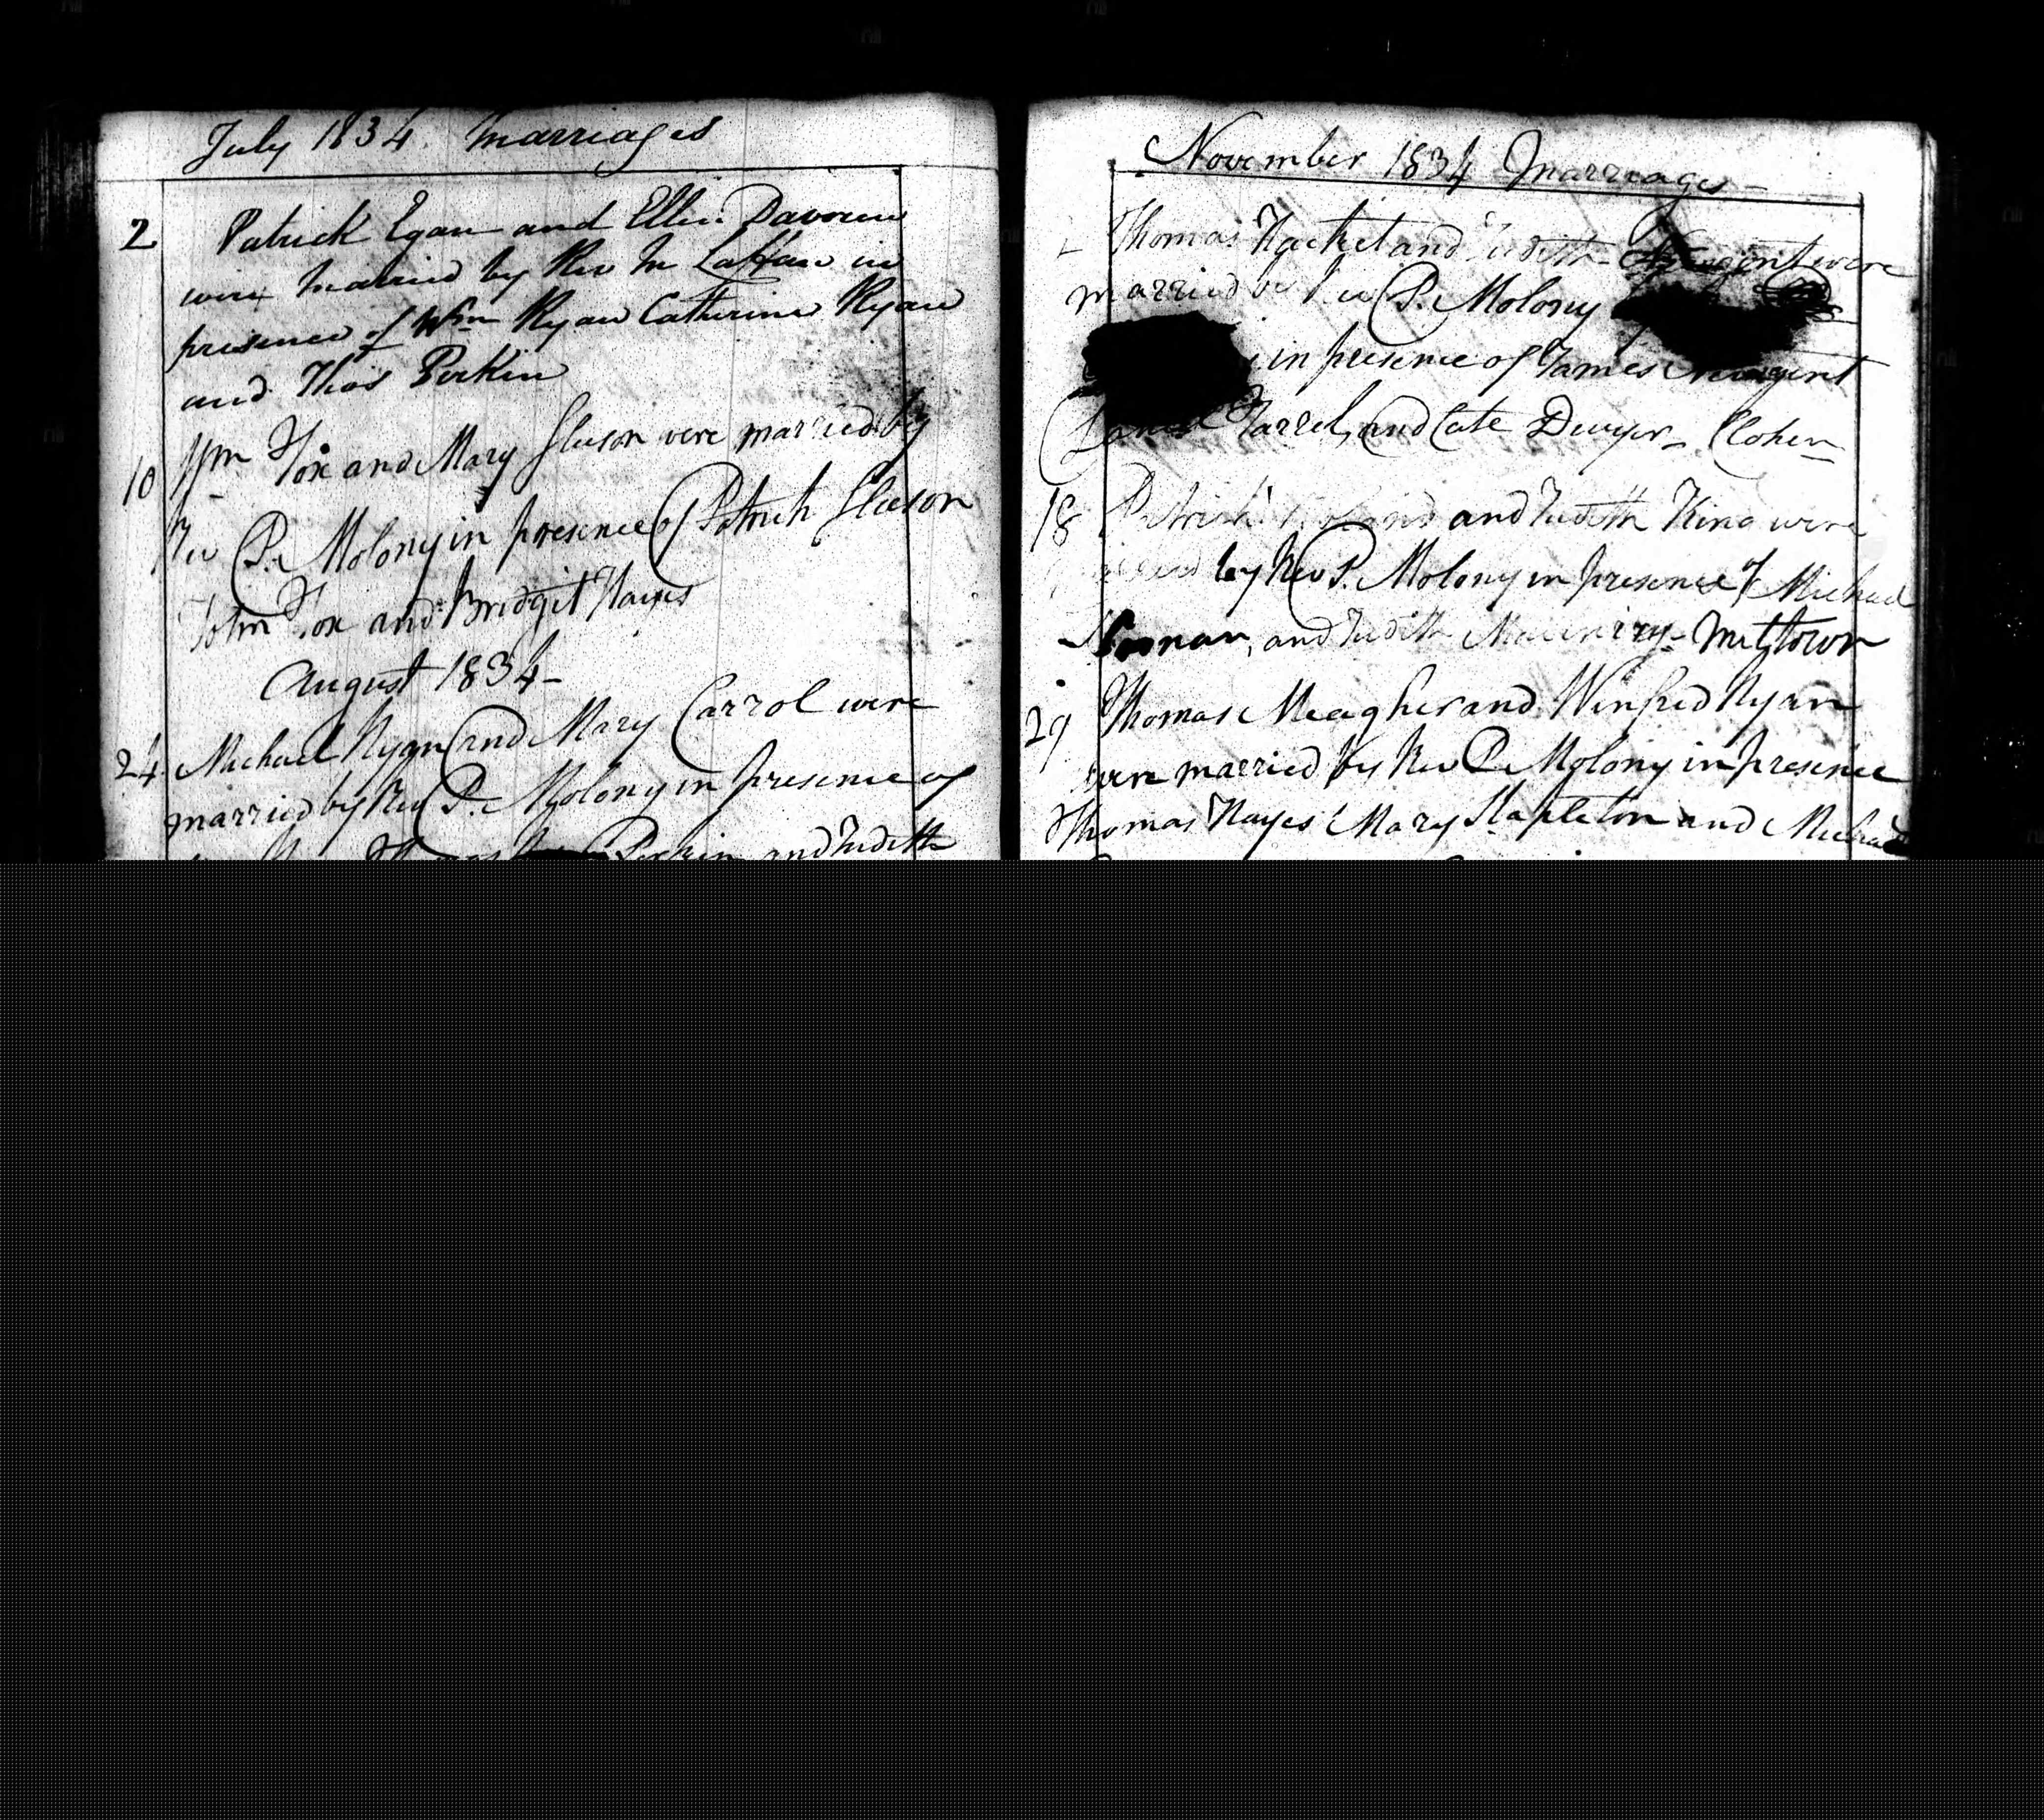 July 1834 Marriages
2 Patrick Egan and Ellen Davoren
were married by Rev M Laffan in
presence of Wm Ryan Catherine Ryan
and Thos Perkin
10 Wm Fox and Mary Gleeson were married by
Rev P. Molony in presence of Patrick Gleeson
John Fox and Bridgit Hayes
August 1834
24 Michael Ryan and Mary Carrol were
married by Rev P. Molony in presence of
Perkin and Judith
November 1834 Marriages
Thomas Hacket and Judith Nugent were
married by Rev P. Molony
in presence of James Nugent
Farrel, and Cate Dwyer - Clohen
18 Patrick and Judith King were
by Rev P. Molony in presence of Michael
Noonan, and Judith Milltown
29 Thomas Meagher and Winfred Ryan
were married by Rev P. Molony in presence
Thomas Hayes Mary Stapleton and Michael